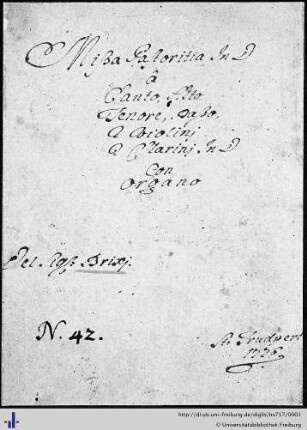 Missa Pastoritia In D
â
Canto, Alto
Tenore, Basso.
2 Violinj
2 Clarinj In D
Con
Organo
Del Sigre Brixj.
N. 42.
St. Trudpert
http://dl.ub.uni-freiburg.de/diglit/hs717/0001
© Universitätsbibliothek Freiburg